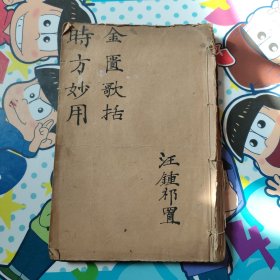 金匱歌括
時方妙用
汪鍾祁置